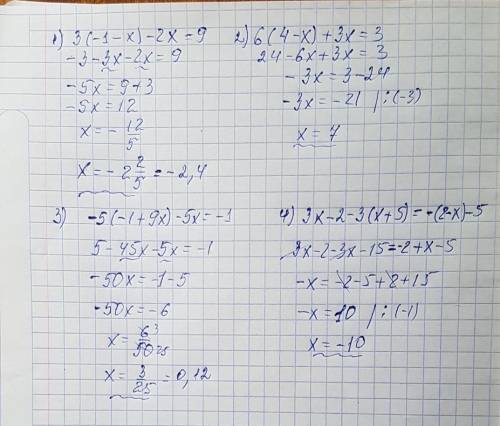 1) 3(-1-x)-2x=9
-3-3x-2x=9
-5x=9+3
-5x=12
x=-12/5
x=-2 2/5=-2,4
2) 6(4-x)+3x=3
24-6x+3x=3
-3x=3-24
-3x=-21 /:(-3)
x=7
3) -5(-1+9x)-5x=-1
5-45x-5x=-1
-50x=-1-5
-50x=-6
x=6 3/50 25
x=3/25=0,12
4) 3x-2-3(x+5)=-(2-x)-5
3x-2-3x-15=-2+x-5
-x=-2-5+2+15
-x=10 /:(-1)
x=-10